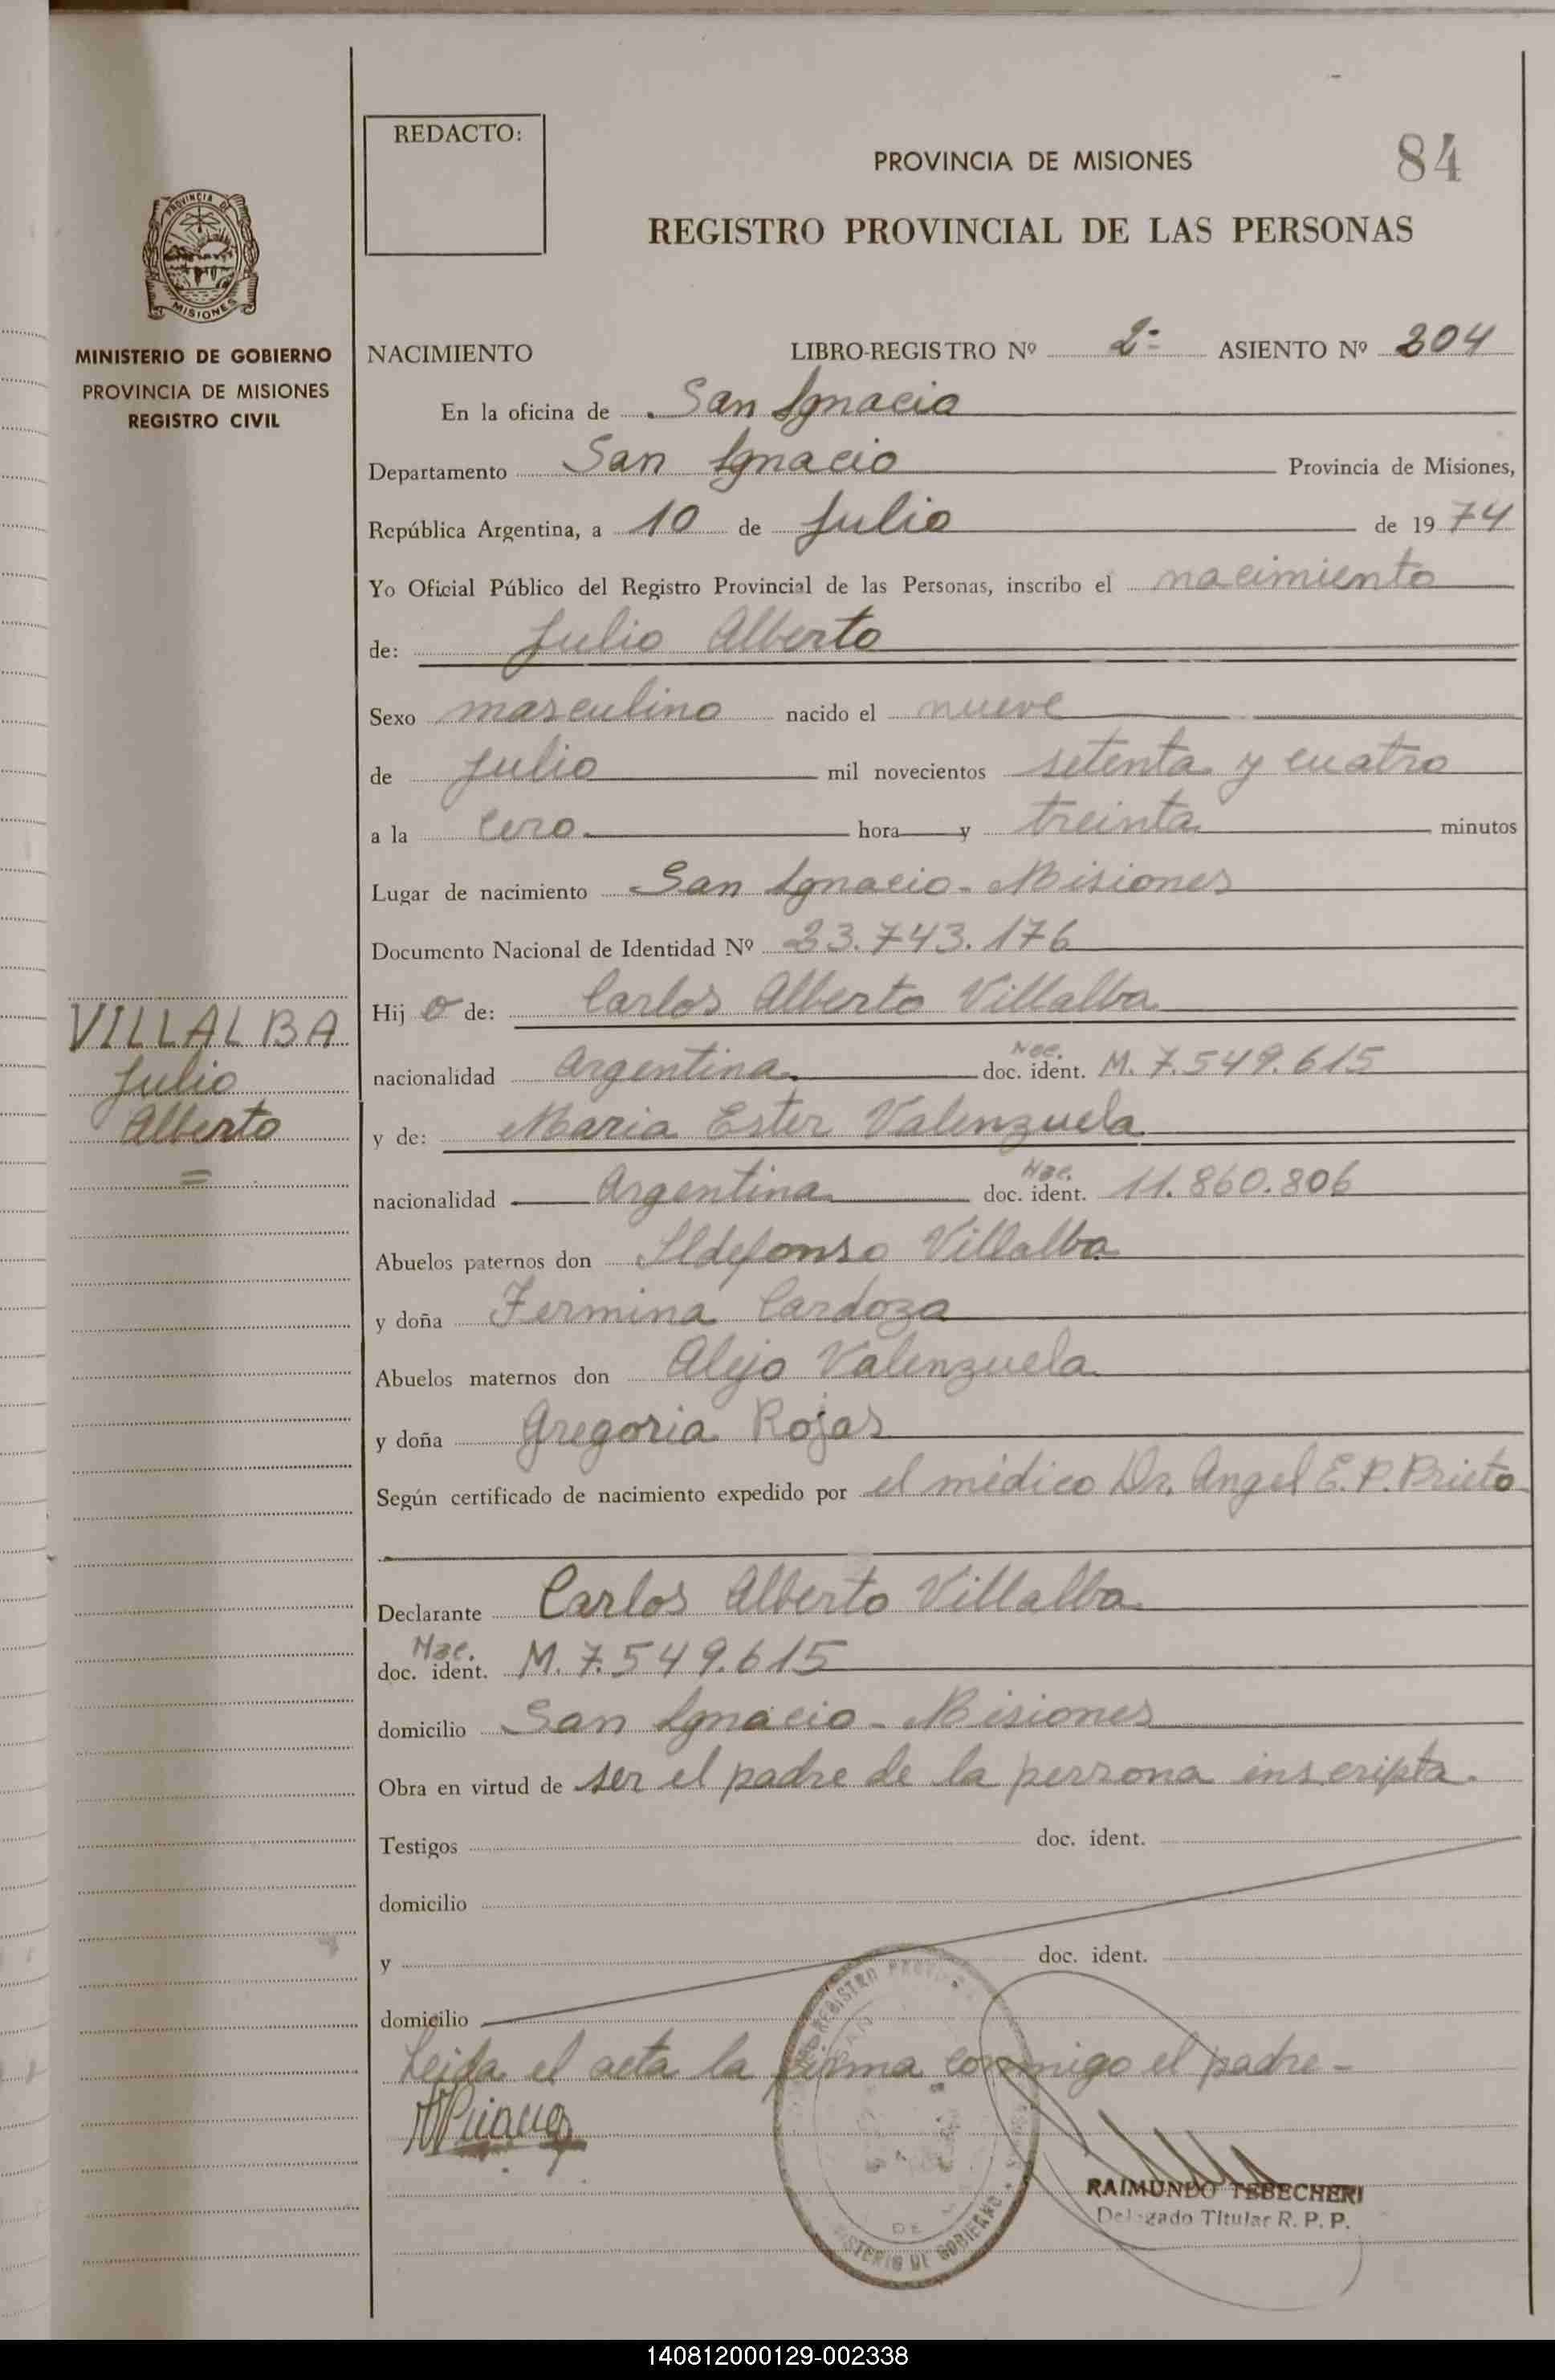 REDACTO:
PROVINCIA DE MISIONES
84
REGISTRO PROVINCIAL DE LAS PERSONAS
PROVINCIA DE
MISIONES
MINISTERIO DE GOBIERNO
PROVINCIA DE MISIONES
REGISTRO CIVIL
NACIMIENTO LIBRO-REGISTRO Nº 2- ASIENTO Nº 204
En la oficina de San Ignacio
Departamento San Ignacio Provincia de Misiones,
República Argentina, a 10 de Julio de 1974
Yo Oficial Público del Registro Provincial de las Personas, inscribo el nacimiento
de: Julio Alberto
Sexo masculino nacido el nueve
de Julio mil novecientos setenta y cuatro
a la cero hora y treinta minutos
Lugar de nacimiento San Ignacio - Misiones
Documento Nacional de Identidad Nº 23.743.176
VILLALBA
Julio
Alberto
Hijo de: Carlos Alberto Villalba
nacionalidad Argentina doc. ident. M. 7.549.615
y de: Maria Ester Valenzuela
nacionalidad Argentina doc. ident. 11.860.806
Abuelos paternos don Ildefonso Villalba
y doña Fermina Cardoza
Abuelos maternos don Alejo Valenzuela
y doña Gregoria Rojas
Según certificado de nacimiento expedido por el médico Dr. Angel E. P. Prieto
Declarante Carlos Alberto Villalba
doc. ident. M. 7.549.615
domicilio San Ignacio - Misiones
Obra en virtud de ser el padre de la persona inscripta.
Testigos doc. ident.
domicilio
y doc. ident.
domicilio
Leida el acta la firma conmigo el padre -
RAIMUNDO TEBECHERI
Delegado Titular R. P. P.
140812000129-002338